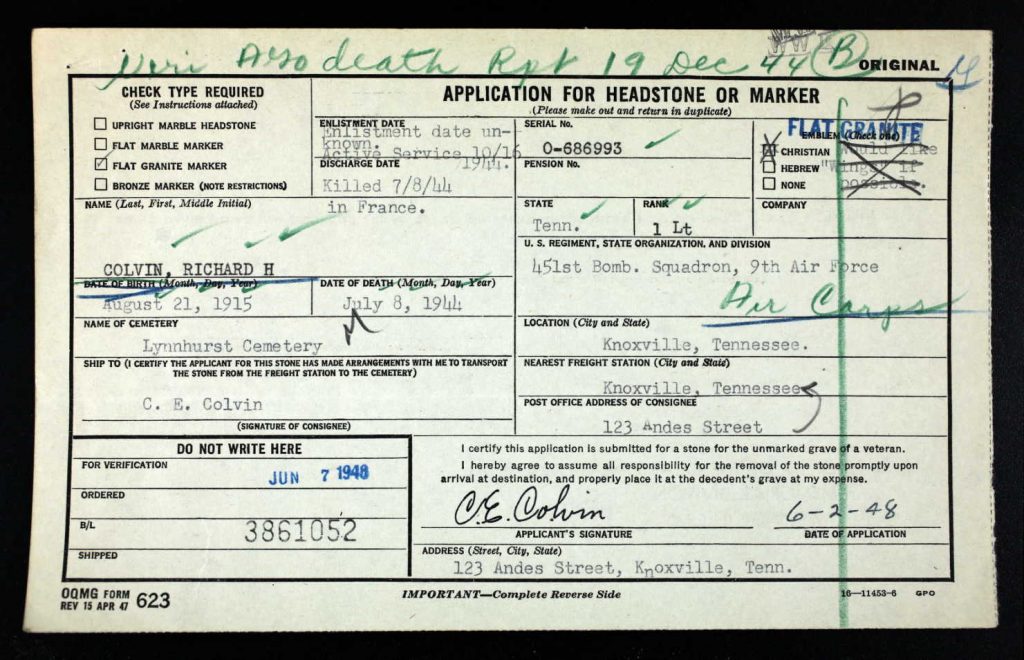 Veri Ago death Rpt 19 Dec 44 B
ORIGINAL
CHECK TYPE REQUIRED
(See Instructions attached)
UPRIGHT MARBLE HEADSTONE
FLAT MARBLE MARKER
FLAT GRANITE MARKER
BRONZE MARKER (NOTE RESTRICTIONS)
APPLICATION FOR HEADSTONE OR MARKER
(Please make out and return in duplicate)
ENLISTMENT DATE
Enlistment date un-
known.
Active Service 10/16
1944.
DISCHARGE DATE
Killed 7/8/44
in France.
SERIAL No.
O-686993
PENSION No.
EMBLEM (Check one)
FLAT GRANITE
CHRISTIAN
HEBREW
NONE
would like
"Wings" if
possible.
NAME (Last, First, Middle Initial)
COLVIN, RICHARD H
STATE
Tenn.
RANK
1 Lt
COMPANY
U. S. REGIMENT, STATE ORGANIZATION, AND DIVISION
451st Bomb. Squadron, 9th Air Force
Air Corps
DATE OF BIRTH (Month, Day, Year)
August 21, 1915
DATE OF DEATH (Month, Day, Year)
July 8, 1944
NAME OF CEMETERY
Lynnhurst Cemetery
LOCATION (City and State)
Knoxville, Tennessee.
SHIP TO (I CERTIFY THE APPLICANT FOR THIS STONE HAS MADE ARRANGEMENTS WITH ME TO TRANSPORT
THE STONE FROM THE FREIGHT STATION TO THE CEMETERY)
C. E. Colvin
(SIGNATURE OF CONSIGNEE)
NEAREST FREIGHT STATION (City and State)
Knoxville, Tennessee
POST OFFICE ADDRESS OF CONSIGNEE
123 Andes Street
DO NOT WRITE HERE
FOR VERIFICATION
JUN 7 1948
ORDERED
B/L
3861052
SHIPPED
I certify this application is submitted for a stone for the unmarked grave of a veteran.
I hereby agree to assume all responsibility for the removal of the stone promptly upon
arrival at destination, and properly place it at the decedent's grave at my expense.
C.E. Colvin
6-2-48
APPLICANT'S SIGNATURE
DATE OF APPLICATION
ADDRESS (Street, City, State)
123 Andes Street, Knoxville, Tenn.
OQMG FORM
REV 15 APR 47 623
IMPORTANT—Complete Reverse Side
16—11453-6 GPO